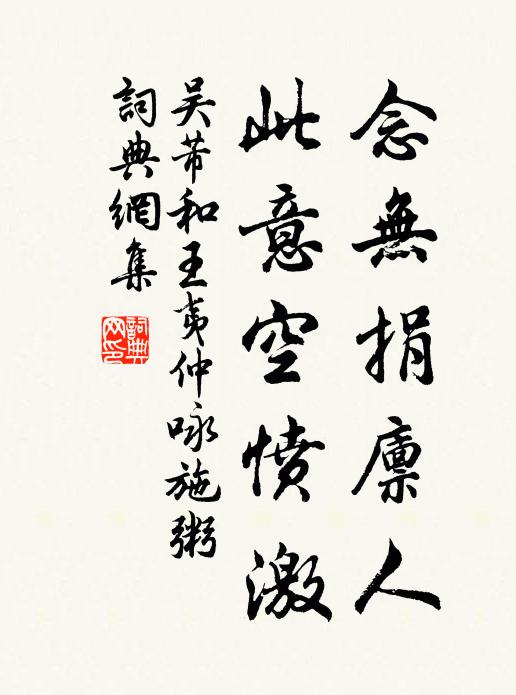 念無捐廪人
此意空憤激
吴芾和王夷仲咏施粥
詞典網集
詞典
网印